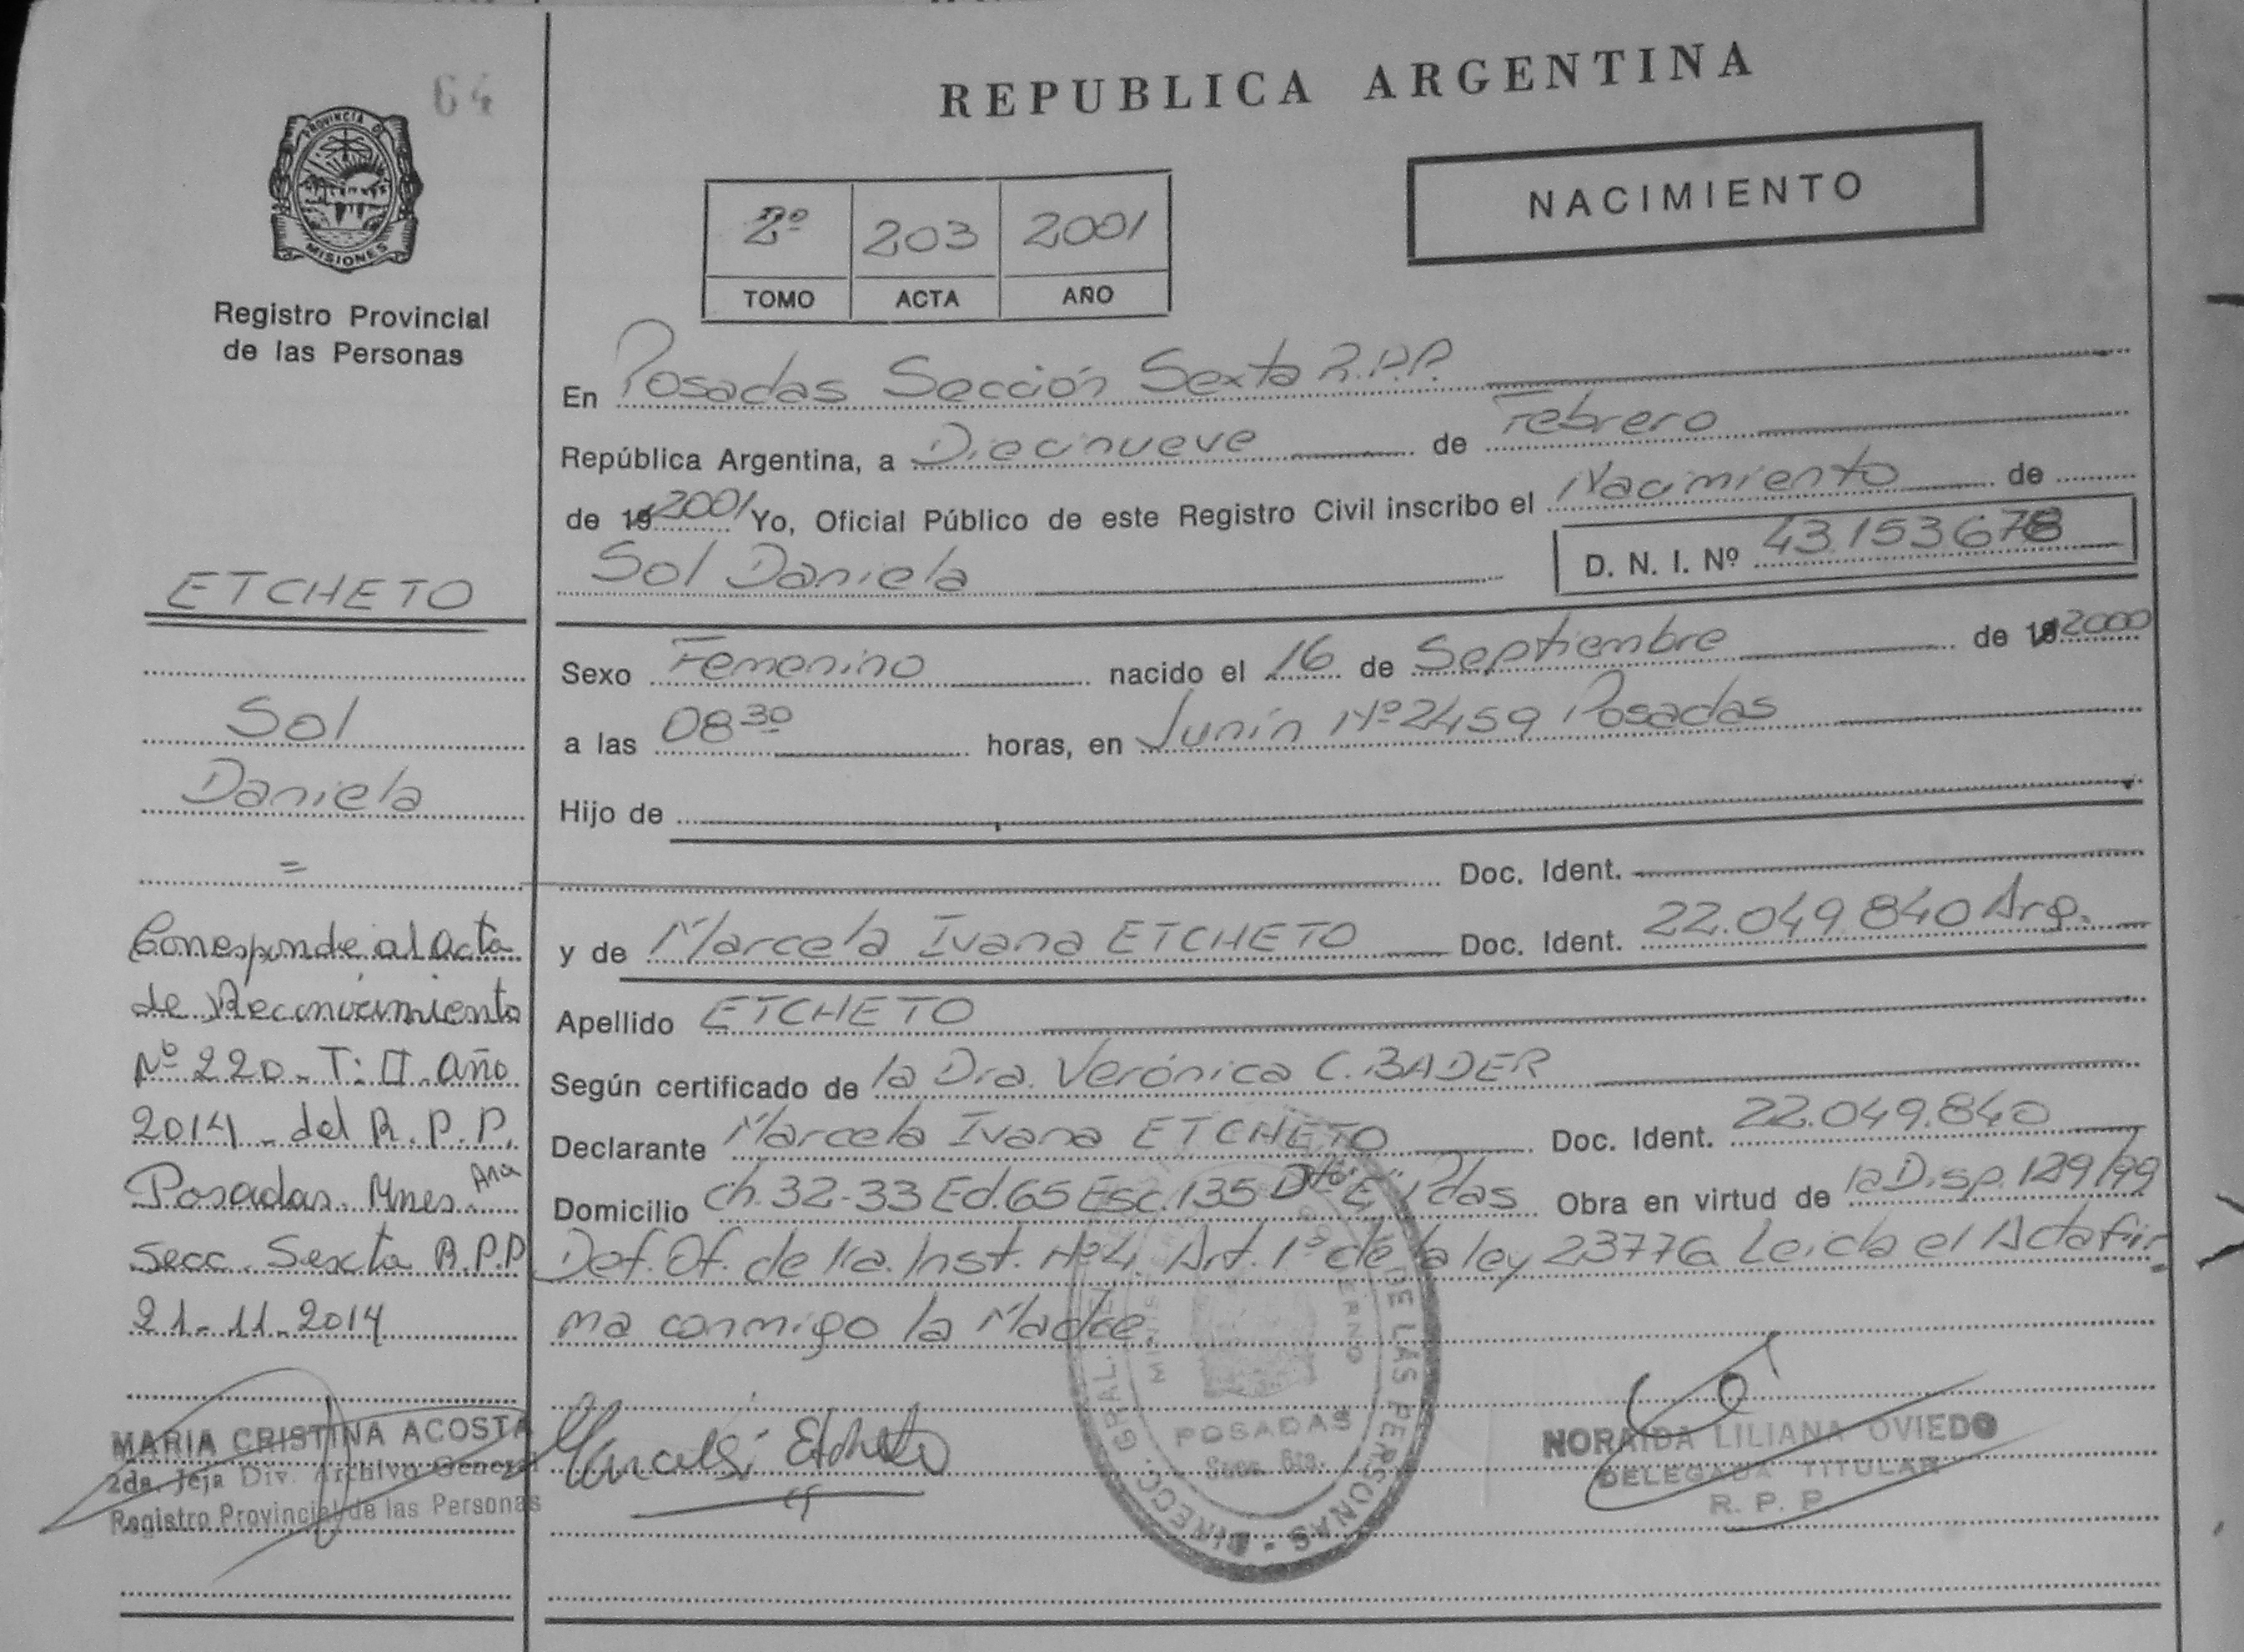 64
PROVINCIA DE
MISIONES
Registro Provincial
de las Personas
ETCHETO
Sol
Daniela
=
Corresponde al acta
de Reconocimiento
Nº 220 - T: II. año
2014 - del R.P.P.
Posadas. Mnes.
Secc. Sexta R.P.P
21-11-2014
MARIA CRISTINA ACOSTA
2da. Jefa Div. Archivo General
Registro Provincial de las Personas
REPUBLICA ARGENTINA
NACIMIENTO
2º 203 2001
TOMO ACTA AÑO
En Posadas Sección Sexta R.P.P.
República Argentina, a Diecinueve de Febrero
de 19 2001 Yo, Oficial Público de este Registro Civil inscribo el Nacimiento de
Sol Daniela D. N. I. Nº 43.153.678
Sexo Femenino nacido el 16 de Septiembre de 19 2000
a las 08 30 horas, en Junín Nº 2459 Posadas
Hijo de
Doc. Ident.
y de Marcela Ivana ETCHETO Doc. Ident. 22.049.840 Arg.
Apellido ETCHETO
Según certificado de la Dra. Verónica C. BADER
Declarante Marcela Ivana ETCHETO Doc. Ident. 22.049.840
Domicilio Ch. 32-33 Ed. 65 Esc. 135 Dto "E" Pdas Obra en virtud de la Disp. 129/99
Def. Of. de 1ra. Inst. Nº 4 Art. 1º de la ley 23776 Leida el Acta fir
ma conmigo la Madre.
Etcheto
DIRECC. GRAL. DE LAS PERSONAS
POSADAS
Secc. 6ta.
NORAIDA LILIANA OVIEDO
DELEGADA TITULAR
R. P. P.